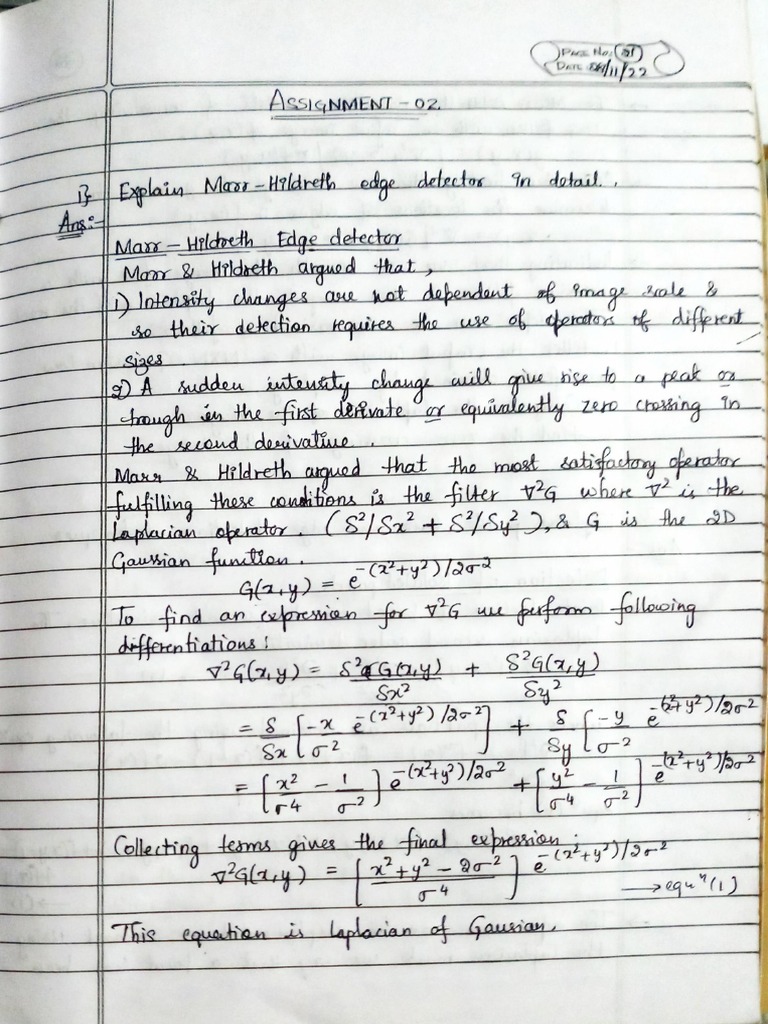 PAGE No: 21
DATE /11/22
ASSIGNMENT - 02.
1} Explain Marr-Hildreth edge detector in detail.
Ans:-
Marr - Hildreth Edge detector
Marr & Hildreth argued that,
1) Intensity changes are not dependent of image scale &
so their detection requires the use of operators of different
sizes
2) A sudden intensity change will give rise to a peak or
trough in the first derivate or equivalently zero crossing in
the second derivative.
Marr & Hildreth argued that the most satisfactory operator
fulfilling these conditions is the filter ∇²G where ∇² is the
Laplacian operator. (δ²/δx² + δ²/δy²), & G is the 2D
Gaussian function.
G(x,y) = e^-(x²+y²)/2σ²
To find an expression for ∇²G we perform following
differentiations:
∇²G(x,y) = δ²G(x,y)/δx² + δ²G(x,y)/δy²
= δ/δx [-x/σ² e^-(x²+y²)/2σ²] + δ/δy [-y/σ² e^-(x²+y²)/2σ²
= [x²/σ⁴ - 1/σ²] e^-(x²+y²)/2σ² + [y²/σ⁴ - 1/σ²] e^-(x²+y²)/2σ²
Collecting terms gives the final expression:
∇²G(x,y) = [(x²+y²-2σ²)/σ⁴] e^-(x²+y²)/2σ²
→ equⁿ(1)
This equation is laplacian of Gaussian.